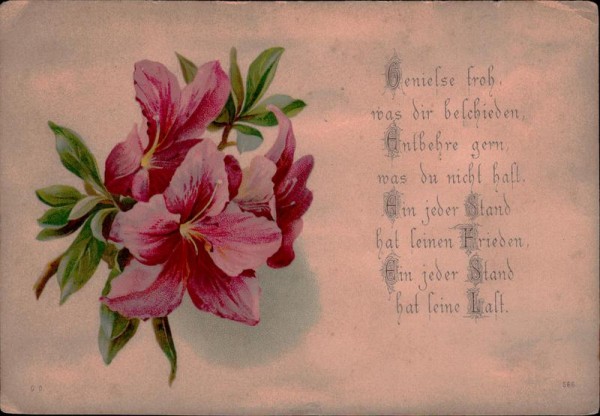 Genieſse froh,
was dir beſchieden,
Entbehre gern,
was du nicht haſt.
Ein jeder Stand
hat ſeinen Frieden,
Ein jeder Stand
hat ſeine Laſt.